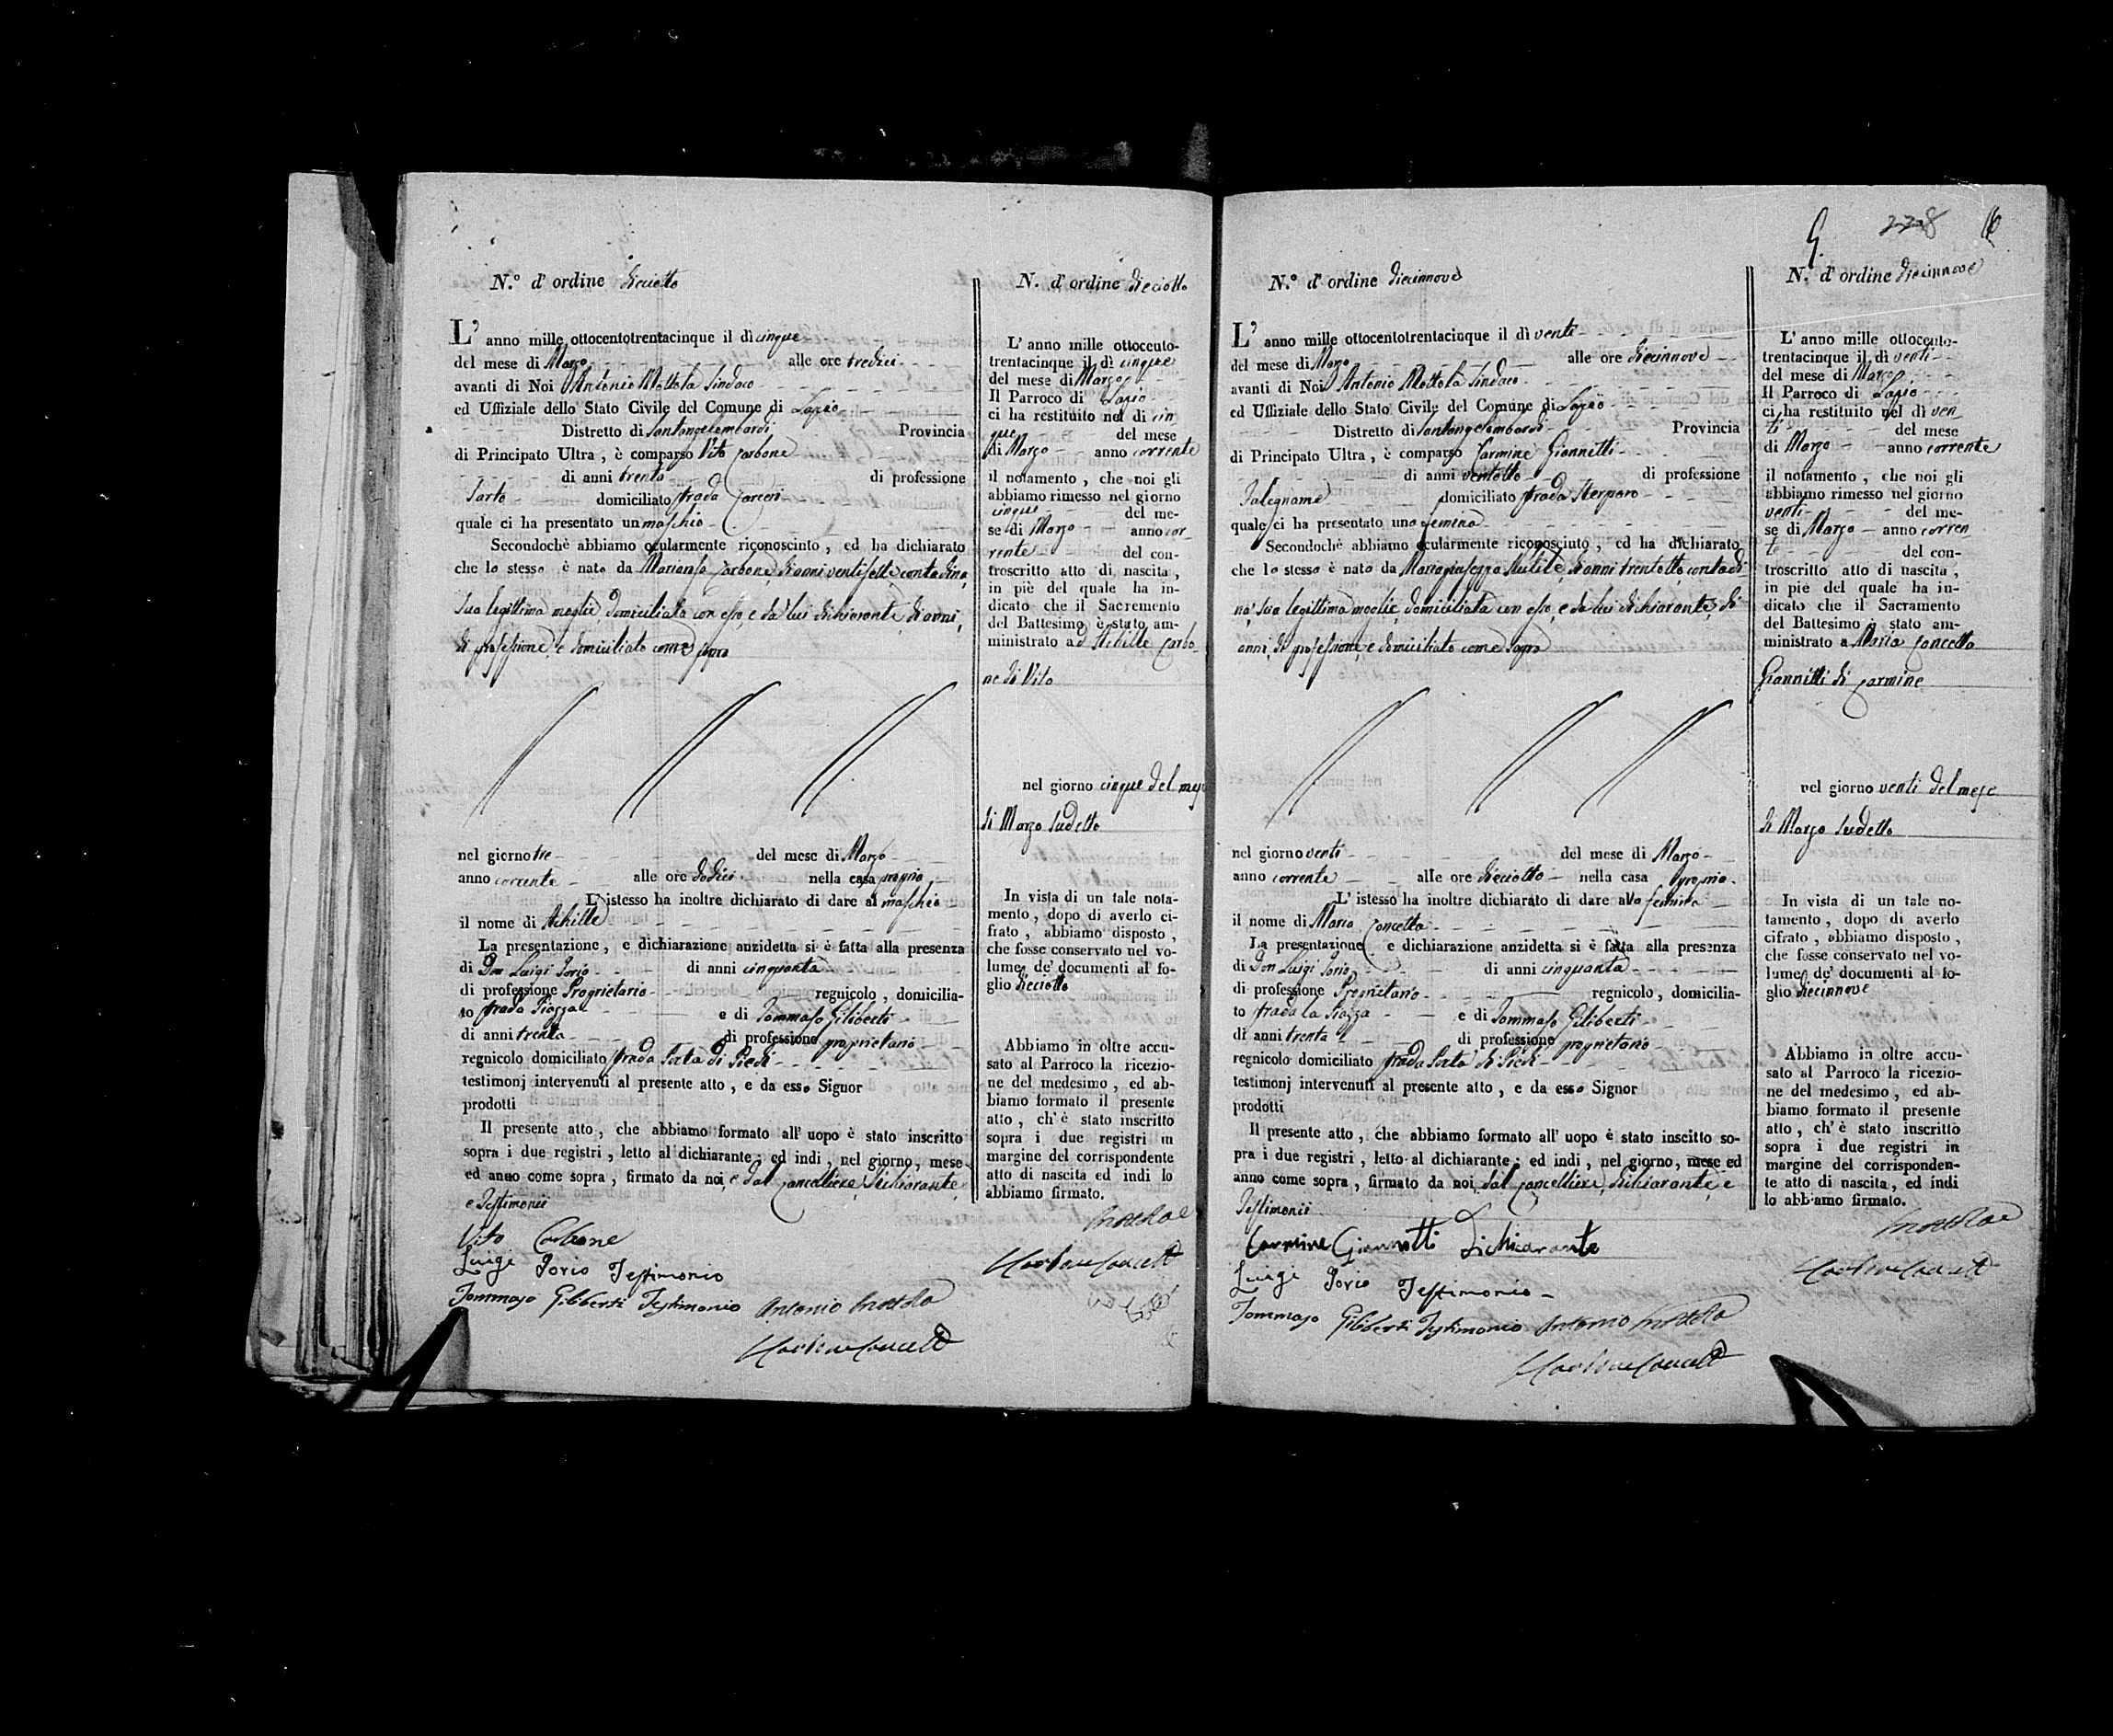 N.º d' ordine dieciotto
L' anno mille ottocentotrentacinque il dì cinque
del mese di Marzo alle ore tredici
avanti di Noi Antonio Mottola Sindaco
ed Uffiziale dello Stato Civile del Comune di Lapio
Distretto di Santangelombardi Provincia
di Principato Ultra , è comparso Vito Carbone
di anni trenta di professione
Sarto domiciliato strada Carceri
quale ci ha presentato un maschio
Secondochè abbiamo ocularmente riconosciuto , ed ha dichiarato
che lo stesso è nato da Marianna Carbone, di anni ventisette, contadina,
sua legittima moglie, domiciliata con esso, e da lui dichiarante, di anni,
di professione, e domiciliato come sopra
nel giorno tre del mese di Marzo
anno corrente alle ore dodici nella casa propria
L' istesso ha inoltre dichiarato di dare al maschio
il nome di Achille
La presentazione , e dichiarazione anzidetta si è fatta alla presenza
di Don Luigi Iorio di anni cinquanta
di professione Proprietario regnicolo , domicilia-
to strada Piazza e di Tommaso Giliberti
di anni trenta di professione proprietario
regnicolo domiciliato strada Porta di Piedi
testimonj intervenuti al presente atto , e da esso Signor
prodotti
Il presente atto , che abbiamo formato all' uopo è stato inscritto
sopra i due registri , letto al dichiarante ; ed indi , nel giorno , mese
ed anno come sopra , firmato da noi, e dal Cancelliere, Dichiarante,
e Testimonii
Vito Carbone
Luigi Iorio Testimonio
Tommaso Giliberti Testimonio Antonio Mottola
N. d' ordine dieciotto
L' anno mille ottocento-
trentacinque il dì cinque
del mese di Marzo
Il Parroco di Lapio
ci ha restituito nel di cin
que del mese
di Marzo anno corrente
il notamento , che noi gli
abbiamo rimesso nel giorno
cinque del me-
se di Marzo anno cor-
rente del con-
troscritto atto di nascita ,
in piè del quale ha in-
dicato che il Sacremento
del Battesimo è stato am-
ministrato ad Achille Carbo-
ne di Vito
nel giorno cinque del mese
di Marzo sudetto
In vista di un tale nota-
mento , dopo di averlo ci-
frato , abbiamo disposto ,
che fosse conservato nel vo-
lume de' documenti al fo-
glio dieciotto
Abbiamo in oltre accu-
sato al Parroco la ricezio-
ne del medesimo , ed ab-
biamo formato il presente
atto , ch' è stato inscritto
sopra i due registri in
margine del corrispondente
atto di nascita ed indi lo
abbiamo firmato.
Mottola
228 16
N.º d' ordine diecinnove
L' anno mille ottocentotrentacinque il dì venti
del mese di Marzo alle ore diecinnove
avanti di Noi Antonio Mottola Sindaco
ed Uffiziale dello Stato Civile del Comune di Lapio
Distretto di Santangelombardi Provincia
di Principato Ultra , è comparso Carmine Giannitti
di anni ventotto di professione
Falegname domiciliato strada Sterparo
quale ci ha presentato una femina
Secondochè abbiamo ocularmente riconosciuto , ed ha dichiarato
che lo stesso è nato da Mariagiuseppa di anni trentotto, contadi-
na, sua legittima moglie, domiciliata con esso, e da lui dichiarante, di
anni, di professione, e domiciliato come sopra
nel giorno venti del mese di Marzo
anno corrente alle ore dieciotto nella casa propria
L' istesso ha inoltre dichiarato di dare alla femina
il nome di Maria Concetta
La presentazione e dichiarazione anzidetta si è fatta alla presenza
di Don Luigi Iorio di anni cinquanta
di professione Proprietario regnicolo , domicilia-
to strada la Piazza e di Tommaso Giliberti
di anni trenta di professione proprietario
regnicolo domiciliato strada Porta di Piedi
testimonj intervenuti al presente atto , e da esso Signor
prodotti
Il presente atto , che abbiamo formato all' uopo è stato inscitto so-
pra i due registri , letto al dichiarante ; ed indi , nel giorno , mese ed
anno come sopra , firmato da noi, dal Cancelliere, Dichiarante, e
Testimonii
Carmine Giannitti Dichiarante
Luigi Iorio Testimonio
Tommaso Giliberti Testimonio Antonio Mottola
N. d' ordine diecinnove
L' anno mille ottocento-
trentacinque il dì venti
del mese di Marzo
Il Parroco di Lapio
ci ha restituito nel dì ven-
ti del mese
di Marzo anno corrente
il notamento , che noi gli
abbiamo rimesso nel giorno
venti del me-
se di Marzo anno corren
te del con-
troscritto atto di nascita ,
in piè del quale ha in-
dicato che il Sacramento
del Battesimo è stato am-
ministrato a Maria Concetta
Giannitti di Carmine
nel giorno venti del mese
di Marzo sudetto
In vista di un tale no-
tamento , dopo di averlo
cifrato , abbiamo disposto ,
che fosse conservato nel vo-
lume de' documenti al fo-
glio diecinnove
Abbiamo in oltre accu-
sato al Parroco la ricezio-
ne del medesimo , ed ab-
biamo formato il presente
atto , ch' è stato inscritto
sopra i due registri in
margine del corrisponden-
te atto di nascita , ed indi
lo abbiamo firmato.
Mottola